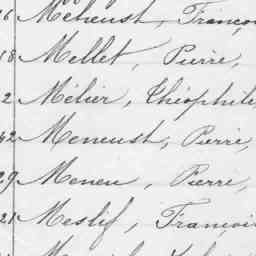 16 Meheust, Françoi
18 Mellet, Pierre,
2 Mélier, Théophile
42 Meneust, Pierre,
29 Meneu, Pierre,
21 Meslif, Françoi